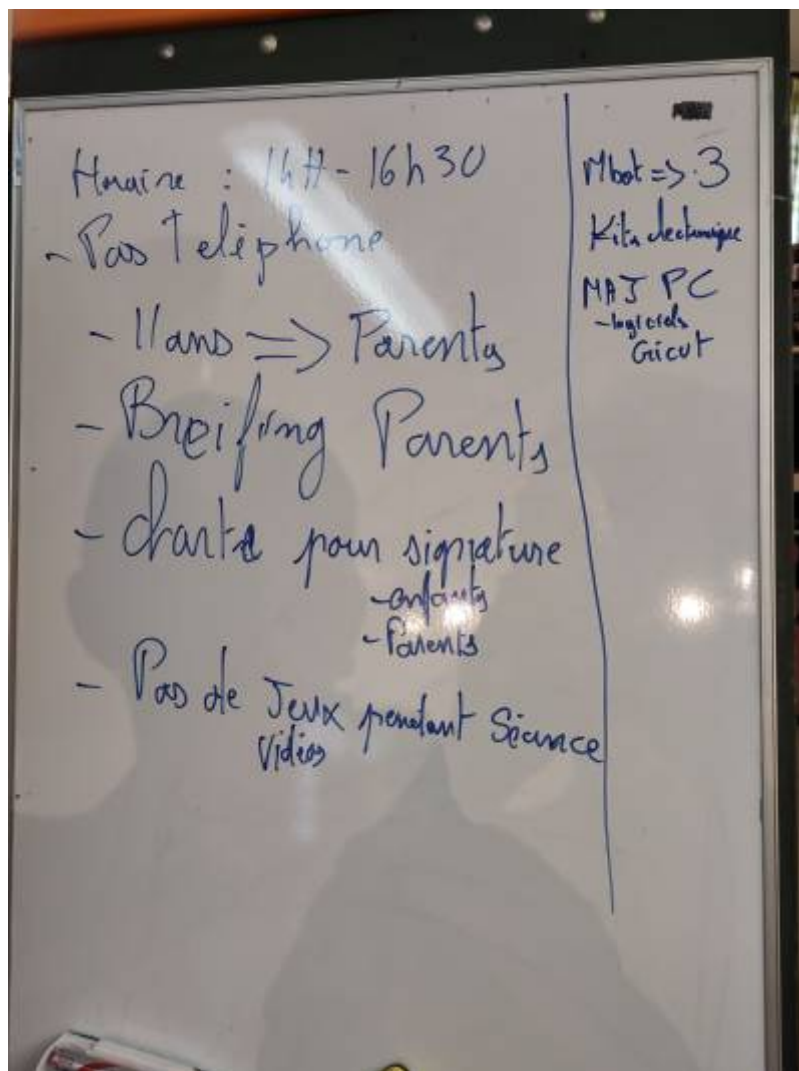 Horaire : 14H - 16h30
- Pas Teléphone
- 11ans => Parents
- Breifing Parents
- charte pour signature
- enfants
- Parents
- Pas de Jeux pendant Séance
Vidéos
Mbot => 3
Kits electronique
MAJ PC
- logiciels
Gricut